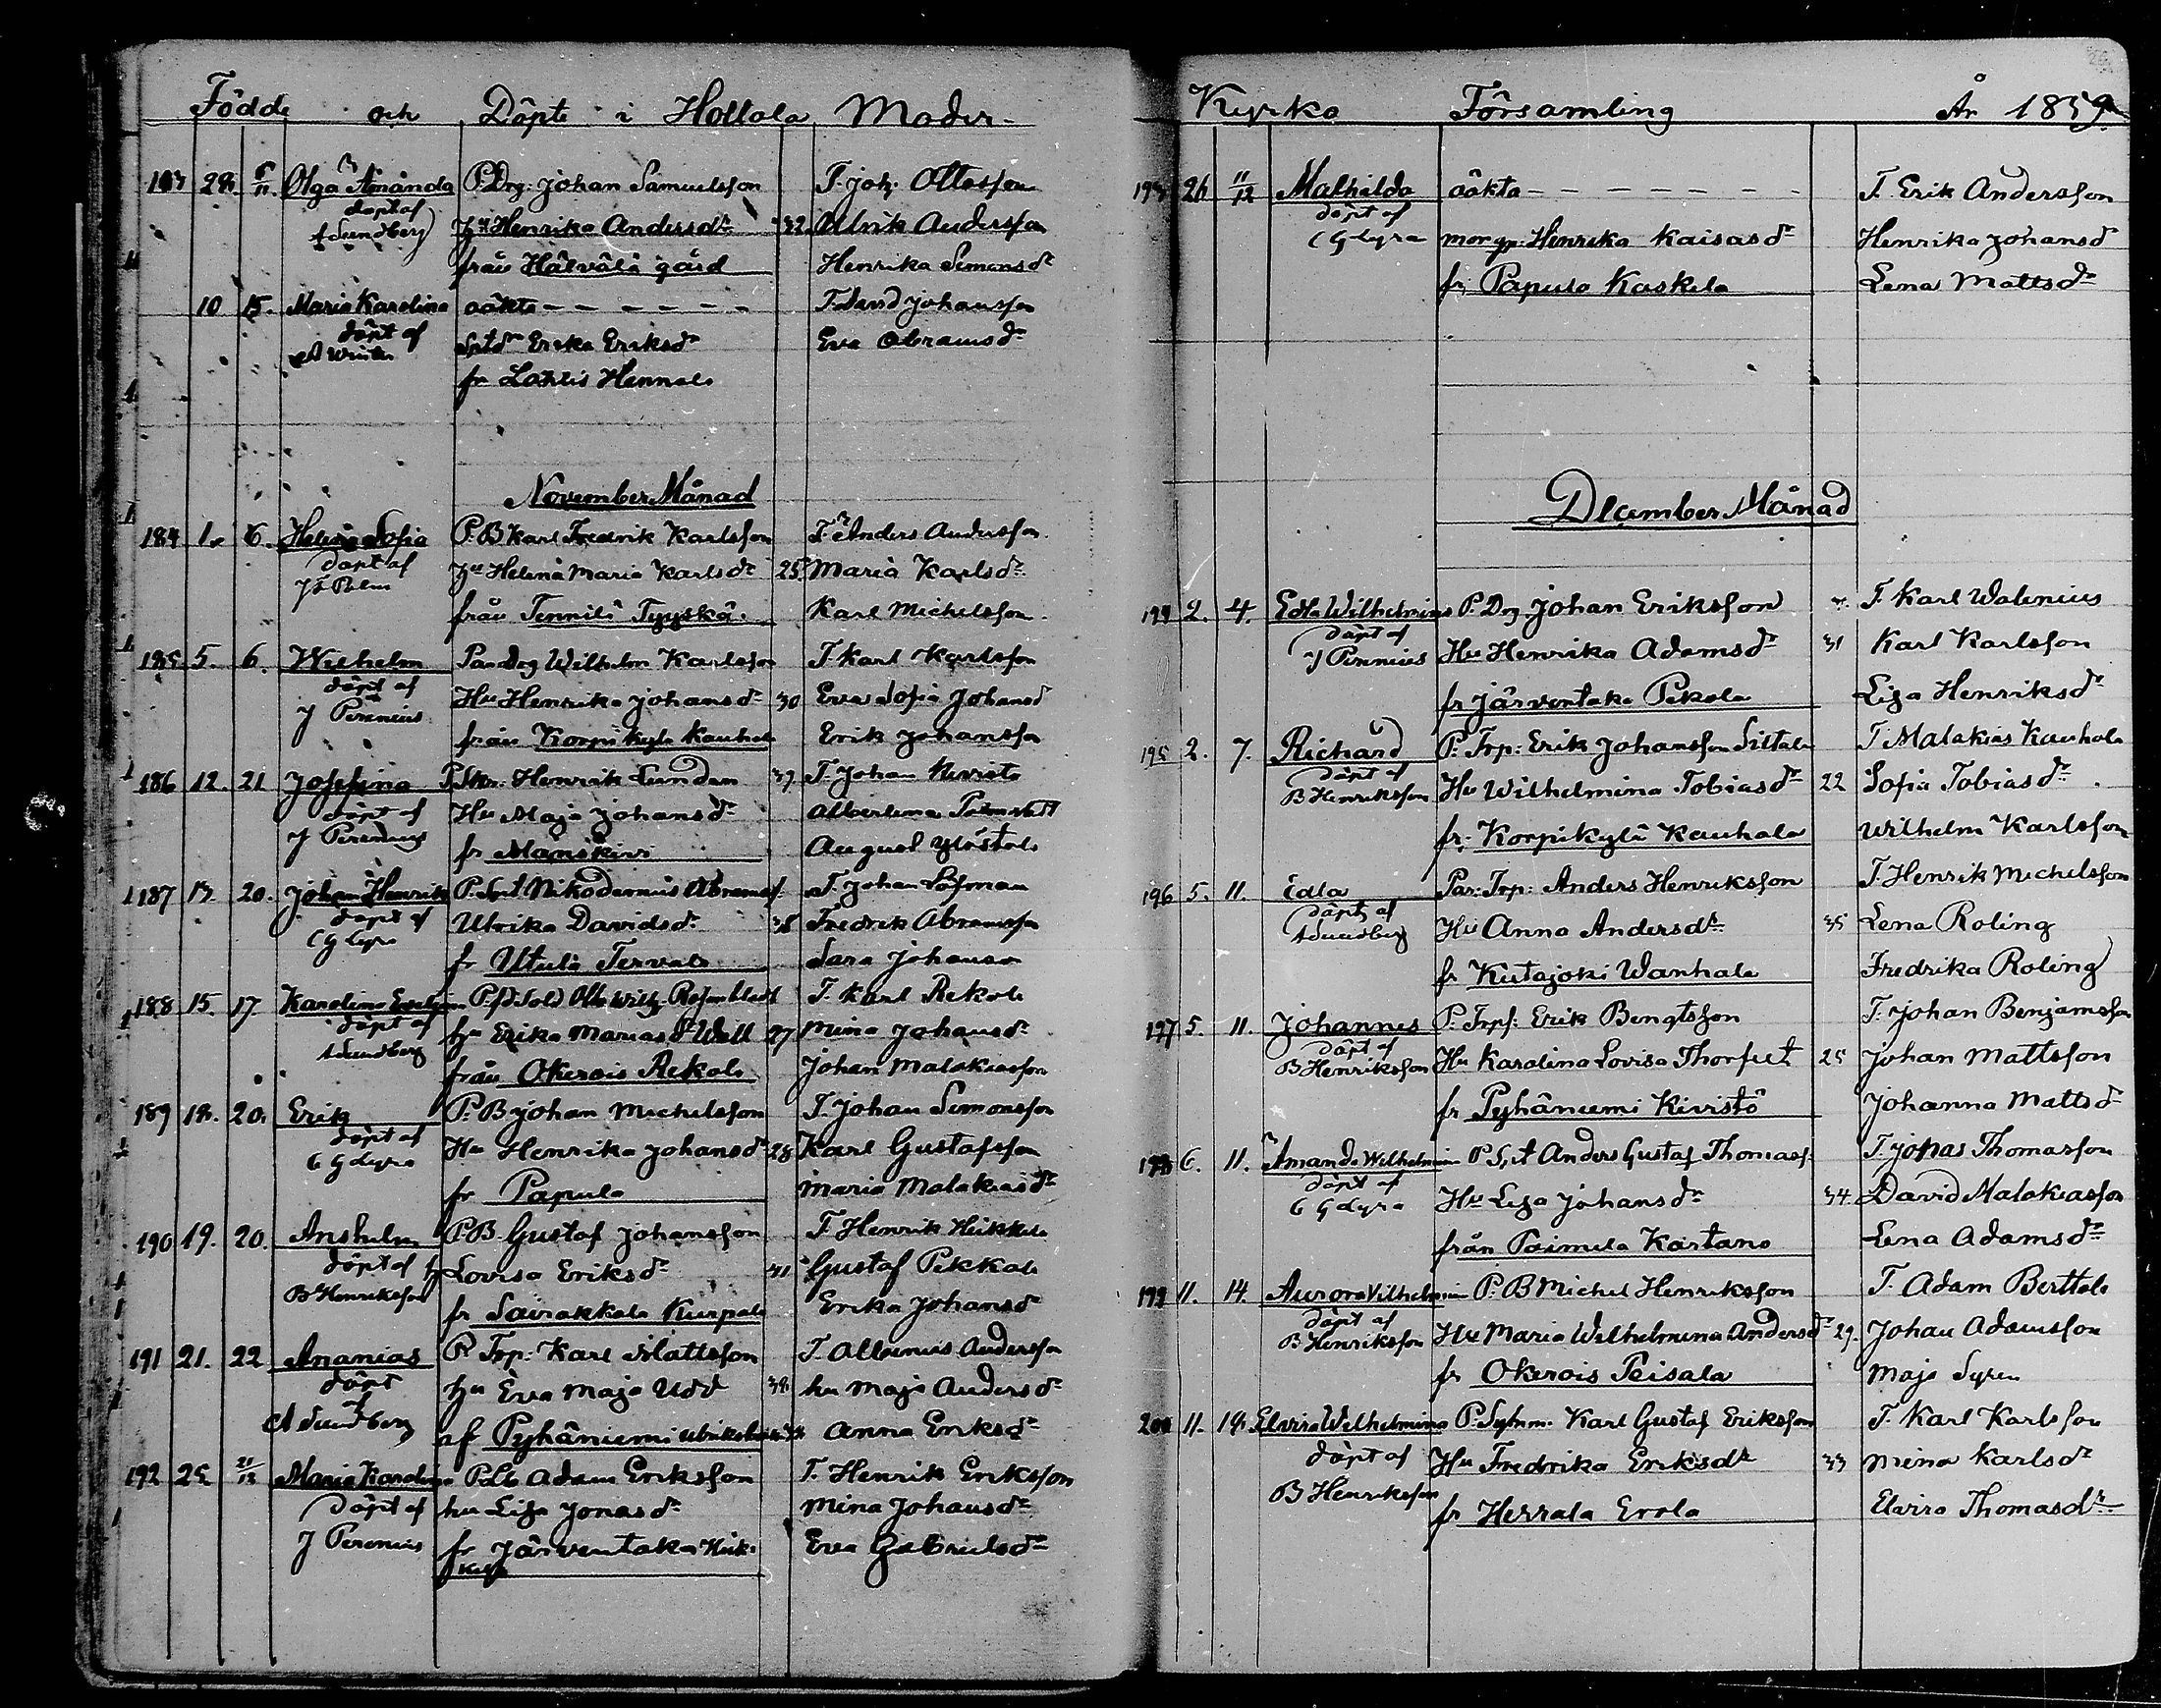 Födde och Döpte i Hollola Moder-
183 28. 6/11. Olga Amanda P. Drg: Johan Samuelsson T. Joh. Ottosson
döpt af
A Sundberg Hu Henrika Andersdr 32. Ulrik Andersson
från Hälvälä gård Henrika Simonsdr
10 15. Maria Karolina oäkta - - - - - - T. David Johansson
döpt af Erika Eriksdr Eva Abramsdr
fr Lahtis Hennala
November Månad
184 1. 6. Helena Sofia P. B Karl Fredrik Karlsson T. Anders Andersson.
döpt af
Hu Helena Maria Karlsdr 25. Maria Karlsdr
från Tennilä Tyyskä. Karl Michelsson.
185 5. 6. Wilhelm Par Drg Wilhelm Karlsson T Karl Karlsson
döpt af
J Perenius Hu Henrika Johansdr 30 Eva Sofia Johansd
från Korpikylä Kauhala Erik Johansson
186 12. 21 Josefina P. Skr. Henrik Lundan 37 T. Johan Kivistö
döpt af Hu Maja Johansdr Albertina
J Perenius fr August Ylöstalo
187 13. 20. Johan Henrik P. Nikodemus Abramss. T. Johan Löfman
döpt af Ulrika Davidsdr 38 Fredrik Abramsson
C G Lyra fr Utula Tervala Sara Johansdr
188 15. 17 Karolina P. Sold Otto Wilh. Rosenblad T. Karl Rekola
döpt af
A Sundberg Hu Erika Mariasdr Wall 27 Mina Johansdr
från Okerois Rekola Johan Malakiasson
189 18. 20. Erik P. B Johan Michelsson T. Johan Simonsson
döpt af
C G Lyra Hu Henrika Johansdr 28 Karl Gustafsson
fr Papula Maria Malakiasdr
190 19. 20. Anshelm P. B. Gustaf Johansson T Henrik Heikkilä
döpt af
B Henriksson h Lovisa Eriksdr 31 Gustaf Pekkala
fr Sairakkala Kurpala Erika Johansd
191 21. 22 Ananias P. Trp: Karl Mattsson T. Albinus Andersson
döpt
A Sundberg hu Eva Maja Udd 38 hu Maja Andersdr
af Pyhäniemi Anna Eriksdr
192 25 21/12 Maria Karolina P. Lb Adam Eriksson T. Henrik Eriksson
döpt af hu Lisa Jonasdr Mina Johansdr
J Perenius fr Järventaka Eva Gabrielsdr
Kyrko Församling År 1859
193 26 11/12 Mathilda oäkta - - - - - - - T. Erik Andersson
döpt af
C G Lyra mor Henrika Kaisasdr Henrika Johansd
fr. Papula Kaskela Lena Mattsdr
December Månad
194 2. 4. Edla Wilhelmina P. Drg Johan Eriksson T. Karl Walenius
döpt af
J Perenius Hu Henrika Adamsdr 31 Karl Karlsson
fr Järventaka Pekola Lisa Henriksdr
195 2. 7. Richard P. Trp: Erik Johansson Siltala T. Malakias Kauhala
döpt af
B Henriksson Hu Wilhelmina Tobiasdr 22 Sofia Tobiasdr
fr. Korpikylä Kauhala Wilhelm Karlsson
196 5. 11. Edla Par: Trp: Anders Henriksson T. Henrik Michelsson
döpt af
A Sundberg Hu Anna Andersdr 35 Lena Roling
fr Kutajoki Wanhala Fredrika Roling
197 5. 11. Johannes P. Trpf. Erik Bengtsson T. Johan Benjamsson
döpt af
B Henriksson Hu Karolina Lovisa 25 Johan Mattsson
fr Pyhäniemi Kivistö Johanna Mattsd
198 6. 11. Amanda Wilhelmina P Anders Gustaf Thomass. T. Jonas Thomasson
döpt af
C G Lyra Hu Lisa Johansdr 34. David Malakiasson
från Paimela Kartano Lena Adamsdr
199 11. 14. Aurora Vilhelmina P. B Michel Henriksson T. Adam Berttala
döpt af
B Henriksson Hu Maria Wilhelmina Andersdr 29. Johan Adamsson
fr Okerois Peisala Maja Syren
200 11. 18. Elvira Wilhelmina P. Karl Gustaf Eriksson T. Karl Karlsson
döpt af Hu Fredrika Eriksdr 33 Mina Karlsdr
B Henriksson fr Herrala Erola Elvira Thomasdr